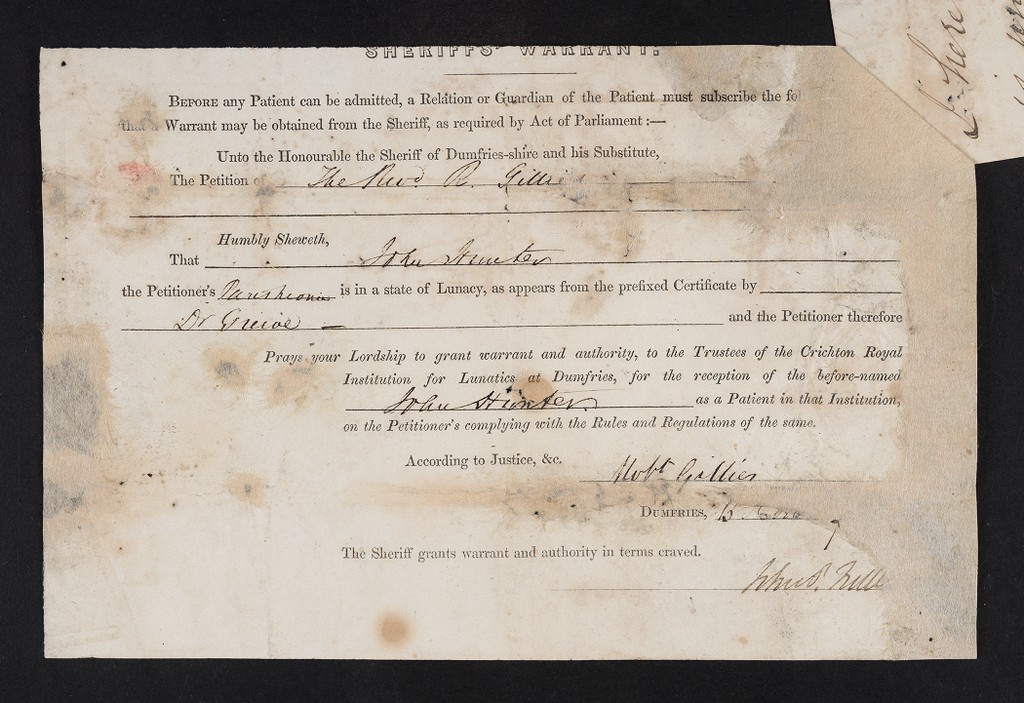 SHERIFFS' WARRANT.
BEFORE any Patient can be admitted, a Relation or Guardian of the Patient must subscribe the fol
that a Warrant may be obtained from the Sheriff, as required by Act of Parliament:—
Unto the Honourable the Sheriff of Dumfries-shire and his Substitute,
The Petition of The Revd R. Gillie
Humbly Sheweth,
That John Hunter
the Petitioner's Parishioner is in a state of Lunacy, as appears from the prefixed Certificate by
Dr Grieve — and the Petitioner therefore
Prays your Lordship to grant warrant and authority, to the Trustees of the Crichton Royal
Institution for Lunatics at Dumfries, for the reception of the before-named
John Hunter as a Patient in that Institution,
on the Petitioner's complying with the Rules and Regulations of the same.
According to Justice, &c.
Robt Gillies
DUMFRIES,
The Sheriff grants warrant and authority in terms craved.